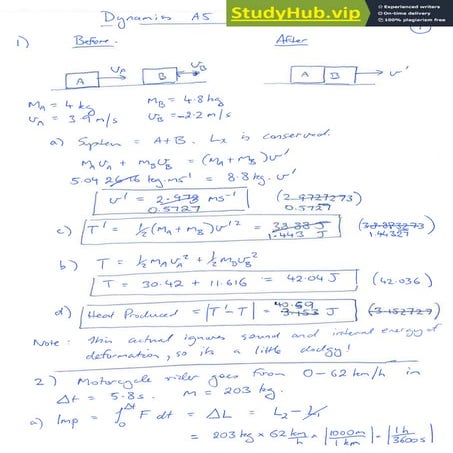 Dynamics A5
StudyHub.vip
Experienced writers
On-time delivery
100% plagiarism free
1)
Before.
After
A
vA
B
vB
A B
v'
MA = 4 kg
MB = 4.8 kg
vA = 3.9 m/s
vB = -2.2 m/s
a) System = A+B. Lx is conserved.
MAvA + MBvB = (MA + MB)v'
5.04 kg.ms⁻¹ = 8.8 kg. v'
v' = 2.973 ms⁻¹ (2.9727273)
0.5727 0.5727
c) T' = ½(MA + MB)v'² = J
1.443 J 1.44327
b) T = ½MAvA² + ½MBvB²
T = 30.42 + 11.616 = 42.04 J (42.036)
d) Heat Produced = |T' - T| = 40.59 3.153 J (3.152727)
Note: This actual ignores sound and internal energy of
deformation, so its a little dodgy!
2) Motorcycle rider goes from 0-62 km/h in
Δt = 5.8s. m = 203 kg.
a) Imp = ∫₀^Δt F dt = ΔL = L₂ - L₁
= 203 kg × 62 km/h × |1000m/1 km| × |1h/3600s|